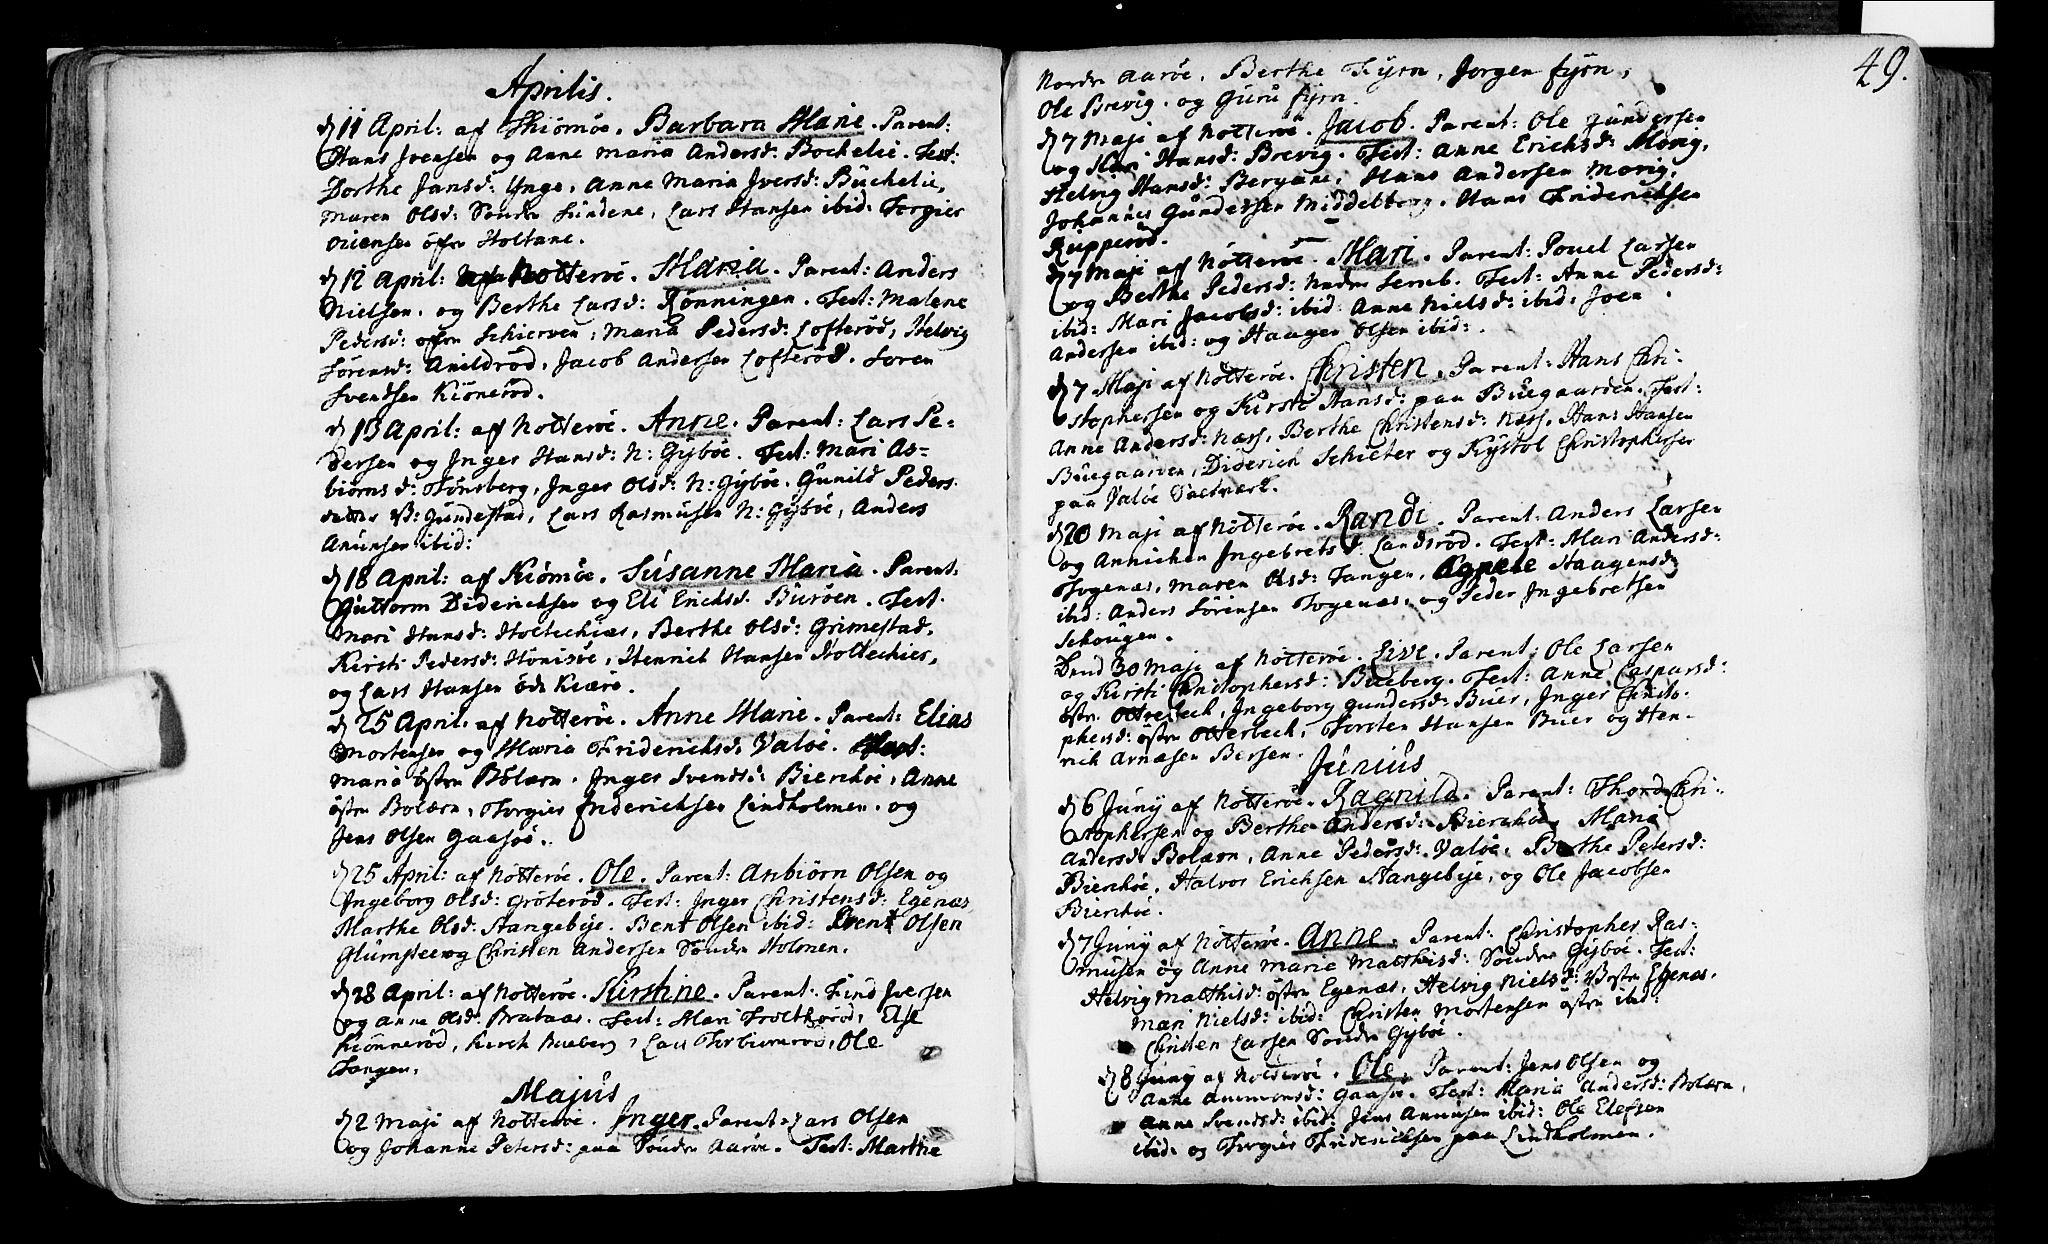 Aprilis.
d 11 April: af Thiömöe. Barbara Marie. Parent:
Hans Jvensen og Anne Maria Andersd: Bochelie. Test:
Dorthe Jansd: Ynge, Anne Maria Jversd: Buchelie,
Maren Olsd: Söndre Sundene, Lars Hansen ibid: Torgier
öfre Holtane.
d 12 April: af Notteröe. Maria. Parent: Anders
Nielsen. og Berthe Larsd: Rønningen. Test: Malene
Pedersd: öfre Schierven, Maria Pedersd: Lofteröd, Helvig
Sörensd: Anildröd, Jacob Andersen Lofteröd. Soren
Svendsen Kiöneröd.
d 13 April: af Notteröe. Anne. Parent: Lars Pe-
dersen og Jnger Hansd: N: Gijböe. Test: Mari As-
biörns d: Tönsberg, Jnger Olsd: N: Gijböe. Gunild Peders
datter V: Gundestad, Lars Rasmusen N: Gijböe, Anders
Anunsen ibid:
d 18 April: af Kiömöe. Susanne Maria. Parent:
Guttorm Didericksen og Eli Ericksd. Buröen. Test.
Mari Hansd: Holtechiær, Berthe Olsd: Grimestad,
Kirsti Pedersd: Hönisöe, Henrich Hansen Holtechier,
og Lars Hansen öde Kiære.
d 25 April: af Notteröe. Anne Marie. Parent: Elias
Mortensen og Maria Fridericksd: Valöe. Test:
Maria östre Bolærn. Jnger Svendsd: Bierchöe, Anne
östre Bolærn, Torgier Fridericksen Lindholmen. og
Jens Olsen Gaasöe.
d 25 April: af Notteröe. Ole. Parent: Anbiörn Olsen og
Jngeborg Olsd: Gröteröd. Test: Jnger Christensd: Egenæs,
Marthe Olsd: Stangebye. Bent Olsen ibid: Svent Olsen
og Christen Andersen Söndre Holmen.
d 28 April: af Notteröe. Kirstine. Parent: Find Jversen
og Anne Olsd: Brataas. Test: Mari Else
Kiönneröd, Bueberg, Lars Ole
Tangen.
Majus
d 2 Maji af Notteröe. Jnger. Parent: Lars Olsen
og Johanne Petersd: paa Söndre Aaröe. Test: Marthe
49.
Nordre Aaröe, Berthe Fyrn, Jorgen fyrn,
Ole Brevig. og Guru fyrn.
d 7 Maji af Notteröe. Jacob. Parent: Ole Gundersen
og Mari Hansd: Brevig. Test: Anne Ericksd: Morig,
Helvig Hansd: Bergane, Hans Andersen Morig,
Johannes Gundersen Middelborg. Hans Fridericksen
Rupperöd.
d 7 Maji af Notteröe. Mari. Parent: Povel Larsen
og Berthe Pedersd: Nedre Semb. Test: Anne Pedersd:
ibid: Mari Jacobsd: ibid: Anne Nielsd: ibid: Joen
Andersen ibid: og Haagen Olsen ibid:
d 7 Maji af Notteröe. Christen. Parent: Hans Chri-
stophersen og Kirsti Hansd: paa Buegaarden. Test:
Anne Andersd: Næss, Berthe Christensd: Næss, Hans Hansen
Buegaarden, Diderich Schieter og Kystol Christophersen
paa Valöe Saltværk.
d 20 Maji af Notteröe. Randi. Parent: Anders Larsen
og Annichen Jngebretsd: Landsröd. Test: Mari Andersd:
Torgenæs, Maren Olsd: Tangen, Agnete Haagensd:
ibid: Anders Sörensen Torgenæs, og Peder Jngebretsen
Schougen.
Dend 30 Maji af Notteröe. Live. Parent: Ole Larsen
og Kirsti Christophersd: Bueberg. Test: Anne Caspersd:
östre Otterbech, Jngeborg Gundersd: Buer, Jnger Christo-
phersd: östre Otterbech, Torsten Hansen Buer og Hen-
rich Arnesen Bersen.
Junius
d 6 Junij af Notteröe. Ragnild. Parent: Thord Chri-
stophersen og Berthe Andersd: Bierchöe. Maria
Andersd: Bolærn, Anne Pedersd: Valöe, Berthe Petersd:
Bierchöe, Halvor Ericksen Stangebye, og Ole Jacobsen
Bierchöe.
d 7 Junij af Notteröe. Anne. Parent: Christopher Ras-
musen og Anne Marie Matthisd: Söndre Gijböe. Test:
Helvig Matthisd: östre Egenæs, Helvig Nielsd: Vestre Egenæs,
Mari Nielsd: ibid: Christen Mortensen östre ibid:
Christen Larsen Söndre Gijböe.
d 8 Junij af Notteröe. Ole. Parent: Jens Olsen og
Anne Gaasöe. Test: Maria Andersd: Bolærn,
Anne Svendsd: ibid: Jens Anunsen ibid: Ole Elefsen
ibid: og Torgier Fridericksen paa Lindholmen.